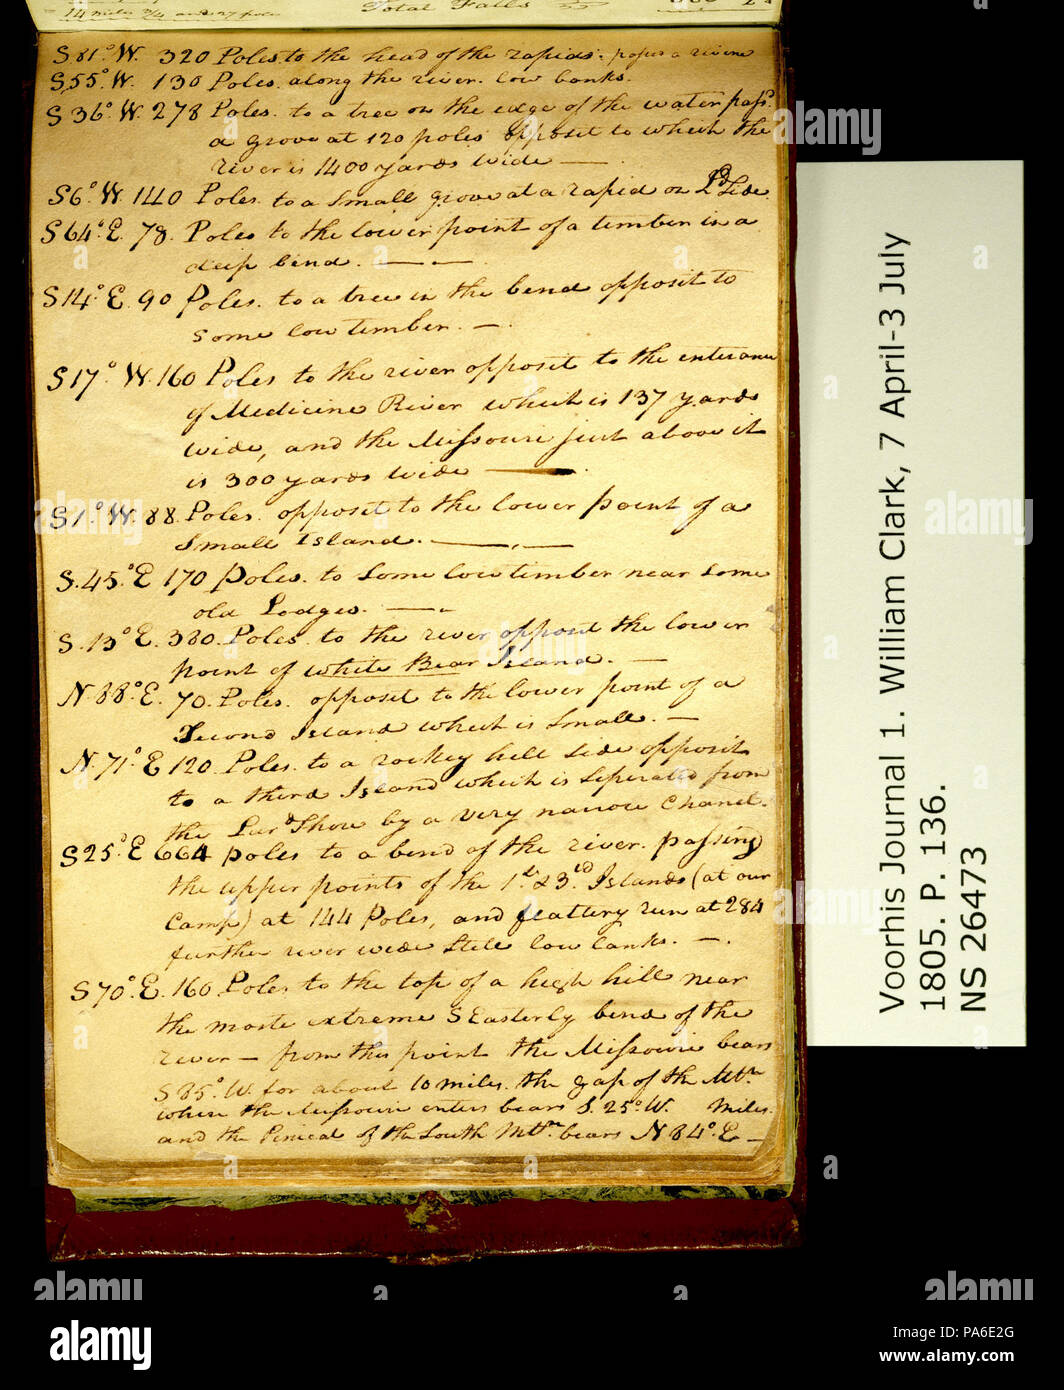 14 miles 3/4 and 27 poles Total Falls
S. 81° W. 320 Poles to the head of the rapids. pass a
S, 55° W. 130 Poles along the river. low banks.
S 36° W. 278 Poles. to a tree on the edge of the water passd.
a grove at 120 poles opposit to which the
river is 1400 yards wide —
S 6° W. 140 Poles. to a Small grove at a rapid on Ld Side.
S 64° E. 78. Poles to the lower point of a timber in a
deep bend. — —
S 14° E. 90 Poles. to a tree in the bend opposit to
some low timber. — .
S 17° W. 160 Poles to the river opposit to the enterance
of Medicine River which is 137 yards
wide, and the Missouri just above it
is 300 yards wide — .
S 1° W. 88. Poles. opposit to the lower point of a
Small Island. — . —
S. 45° E 170 poles. to Some low timber near Some
old Lodges. — .
S. 13° E. 380. Poles. to the river opposit the lower
point of white Bear Island. —
N. 88° E. 70. Poles. opposit to the lower point of a
Second Island which is Small. —
N. 71° E 120. Poles. to a rockey hill Side opposit
to a third Island which is Seperated from
the Lard Shore by a very narrow Chanel.
S 25° E 664 poles to a bend of the river. passing
the upper points of the 1st & 3rd. Islands (at our
Camp) at 144 Poles, and flattery run at 284
further river wide Still low banks. — .
S 70° E. 160. Poles to the top of a high hill near
the moste extreme S Easterly bend of the
river — from this point the Missouri bears
S 85° W. for about 10 miles. the gap of the Mtn
where the Missouri enters bears S. 25° W. Miles.
and the Pinical of the South Mtn. bears N 84° E —
Voorhis Journal 1. William Clark, 7 April-3 July
1805. P. 136.
NS 26473
alamy
Image ID: PA6E2G
www.alamy.com